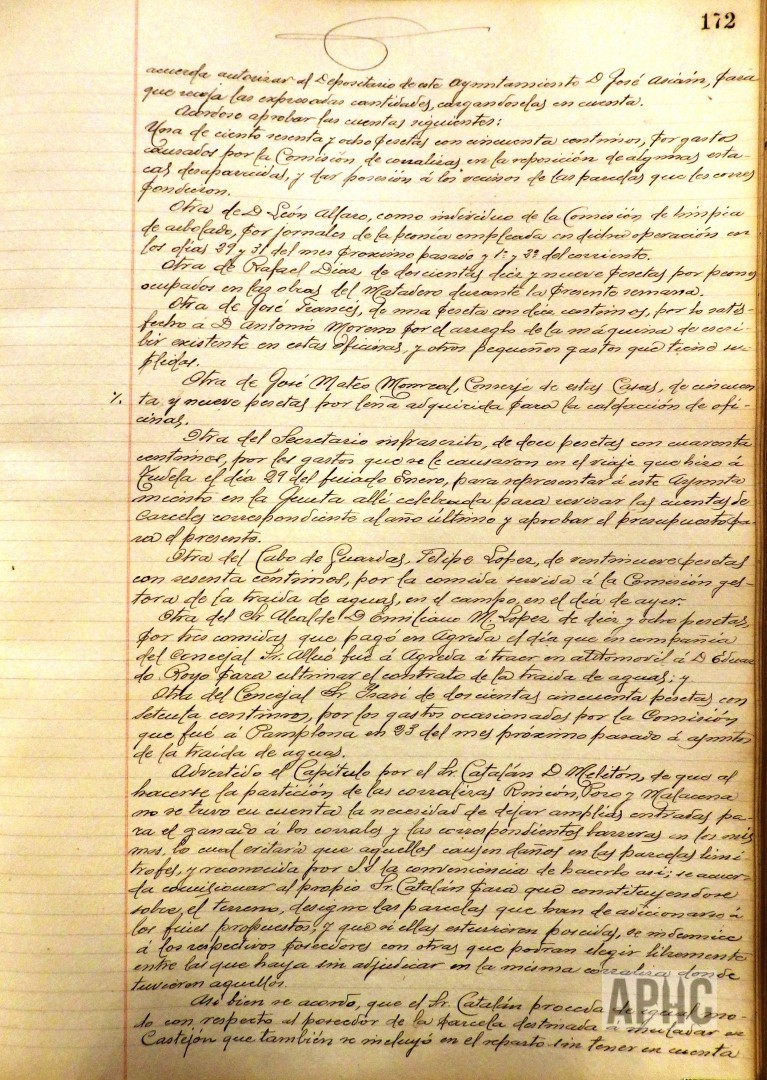 172
acuerda autorizar al Depositario de este Ayuntamiento D. José Asiain, para
que recoja las expresadas cantidades, cargandoselas en cuenta.
Acordose aprobar las cuentas siguientes:
Una de ciento sesenta y ocho pesetas con cincuenta centimos, por gastos
causados por la Comisión de corralizas en la reposición de algunas esta-
cas desaparecidas, y dar posesión á los vecinos de las parcelas que les corres
pondieron.
Otra de D. León Alfaro, como individuo de la Comisión de limpia
de arbolado, por jornales de la peonía empleada en dicha operación en
los días 29 y 31 del mes próximo pasado y 1º y 2º del corriente.
Otra de Rafael Díaz de doscientas diez y nueve pesetas por peones
ocupados en las obras del Matadero durante la presente semana.
Otra de José Francés, de una peseta con diez centimos, por lo satis-
fecho á D. Antonio Moreno por el arreglo de la máquina de escri-
bir existente en estas oficinas, y otros pequeños gastos que tiene su-
plidos.
Otra de José Mateo Monreal, Conserje de estas Casas, de cincuen
ta y nueve pesetas por leña adquirida para la calefacción de ofi-
cinas.
Otra del Secretario infrascrito, de doce pesetas con cuarenta
centimos, por los gastos que se le causaron en el viaje que hizo á
Tudela el día 29 del finado Enero, para representar á este Ayunta
miento en la Junta allí celebrada para revisar las cuentas de
Carceles correspondiente al año último y aprobar el presupuesto pa-
ra el presente.
Otra del Cabo de Guardas, Felipe Lopez, de veintinueve pesetas
con sesenta céntimos, por la comida servida á la Comisión ges-
tora de la traida de aguas, en el campo, en el día de ayer.
Otra del Sr. Alcalde D. Emiliano M. Lopez de diez y ocho pesetas,
por tres comidas que pagó en Agreda el día que en compañía
del Concejal Sr. Allué fué á Agreda á traer en automovil á D. Eduar
do Royo para ultimar el contrato de la traida de aguas; y
Otra del Concejal Sr. Isasi de doscientas cincuenta pesetas con
setenta centimos, por los gastos ocasionados por la Comisión
que fué á Pamplona en 23 del mes próximo pasado á asuntos
de la traida de aguas.
Advertido el Capítulo por el Sr. Catalán D. Melitón, de que al
hacerse la partición de las corralizas Rincón, Pozo y
no se tuvo en cuenta la necesidad de dejar amplias entradas pa-
ra el ganado á los corrales y las correspondientes barreras en los mis
mos, lo cual evitaría que aquellos causen daños en las parcelas limi
trofes, y reconocida por S.S. la conveniencia de hacerlo así; se acuer-
da comisionar al propio Sr. Catalán para que constituyendose
sobre el terreno, designe las parcelas que han de adicionarse á
los fines propuestos, y que si ellas estuvieren poseidas, se indemnice
á los respectivos poseedores con otras que podran elegir libremente
entre las que haya sin adjudicar en la misma corraliza donde
tuvieron aquellos.
Asi bien se acordó, que el Sr. Catalán proceda de igual mo-
do con respecto al poseedor de la parcela destinada a muladar en
Castejón que también se incluyó en el reparto sin tener en cuenta
APHC